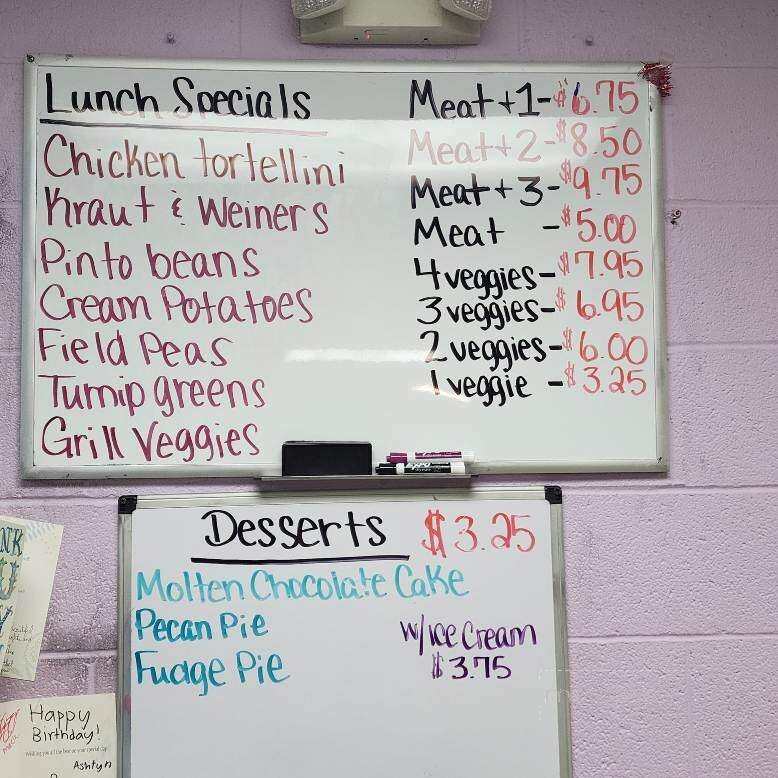 Lunch Specials
Chicken tortellini
Kraut & Weiners
Pinto beans
Cream Potatoes
Field Peas
Turnip greens
Grill Veggies
Meat + 1 - $6.75
Meat + 2 - $8.50
Meat + 3 - $9.75
Meat - $5.00
4 veggies - $7.95
3 veggies - $6.95
2 veggies - $6.00
1 veggie - $3.25
Desserts $3.25
Molten Chocolate Cake
Pecan Pie
Fudge Pie
w/ice Cream
$3.75
NK
U
Happy
Birthday!
Wishing you all the best on your special day!
Ashtyn